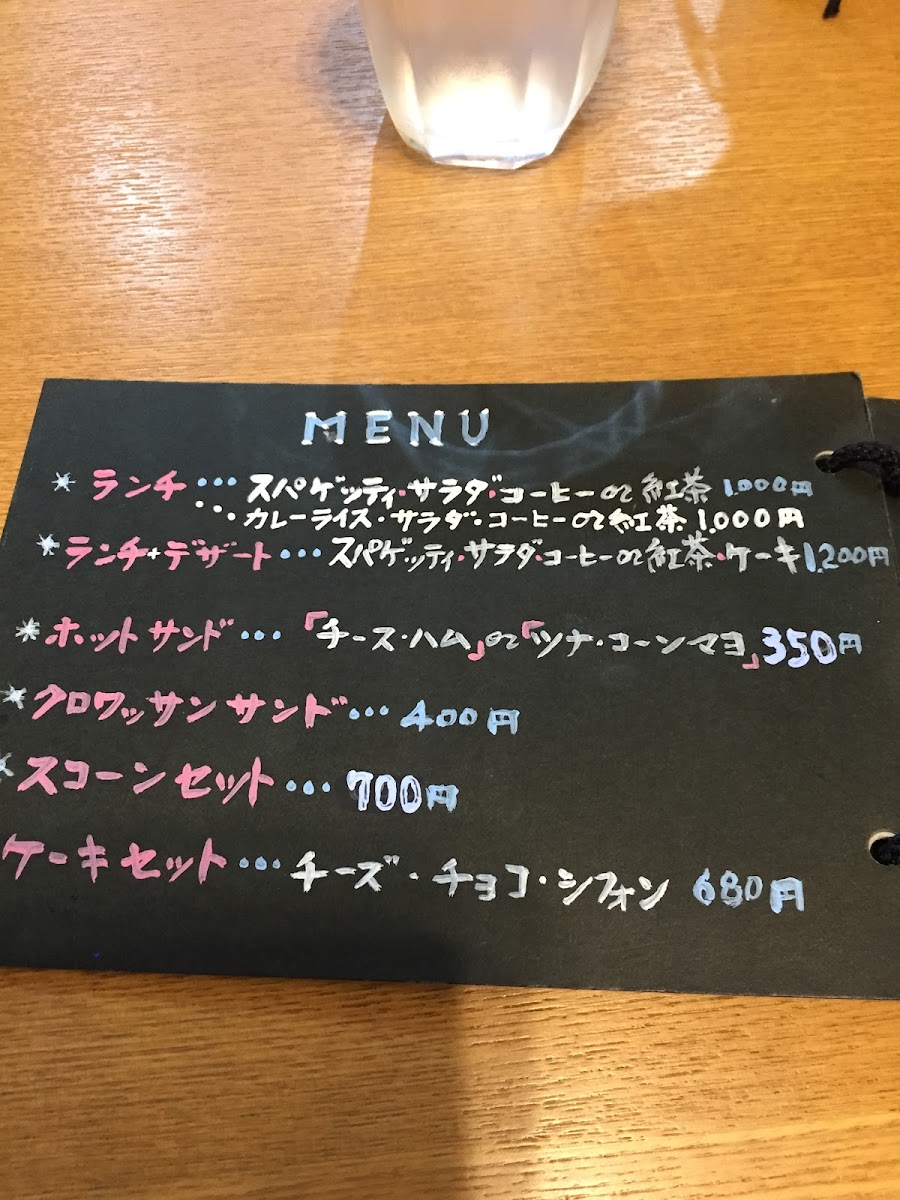 MENU
* ランチ・・・スパゲッティ・サラダ・コーヒーor紅茶 1,000円
・・・カレーライス・サラダ・コーヒーor紅茶 1,000円
* ランチ+デザート・・・スパゲッティ・サラダ・コーヒーor紅茶・ケーキ 1,200円
* ホットサンド・・・「チーズ・ハム」or「ツナ・コーンマヨ」350円
* クロワッサンサンド・・・400円
* スコーンセット・・・700円
ケーキセット・・・チーズ・チョコ・シフォン 680円